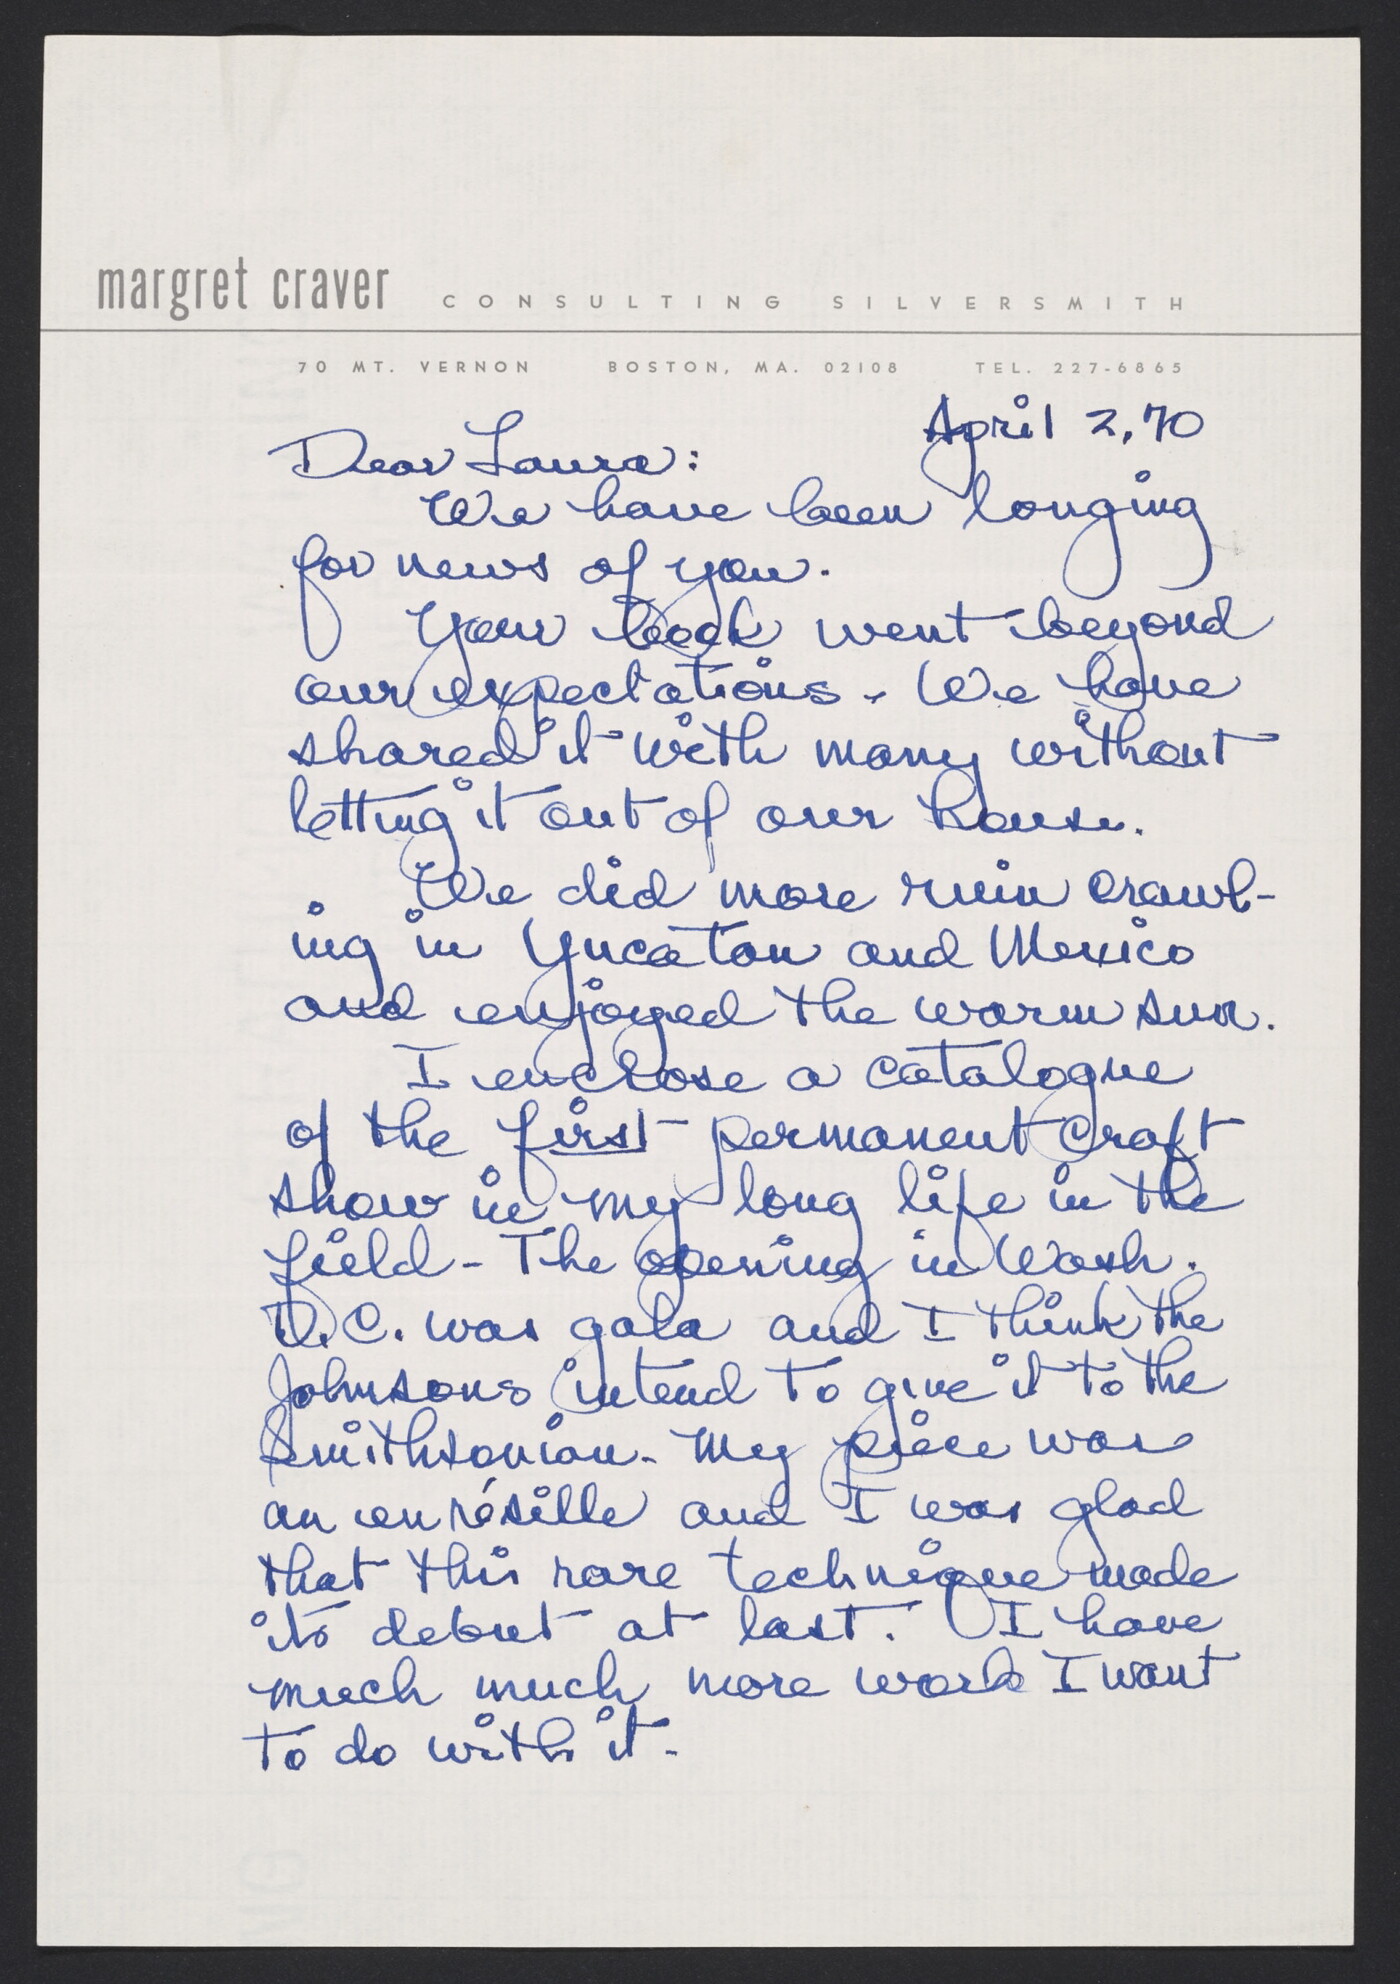 margret craver CONSULTING SILVERSMITH
70 MT. VERNON BOSTON, MA. 02108 TEL. 227-6865
April 2, 70
Dear Laura:
We have been longing
for news of you.
Your book went beyond
our expectations. We have
shared it with many without
letting it out of our house.
We did more ruin crawl-
ing in Yucatan and Mexico
and enjoyed the warm sun.
I enclose a catalogue
of the first permanent Craft
show in my long life in the
field - The opening in Wash.
D.C. was gala and I think the
Johnsons intend to give it to the
Smithsonian. My piece was
an en résille and I was glad
that this rare technique made
its debut at last. I have
much much more work I want
to do with it.